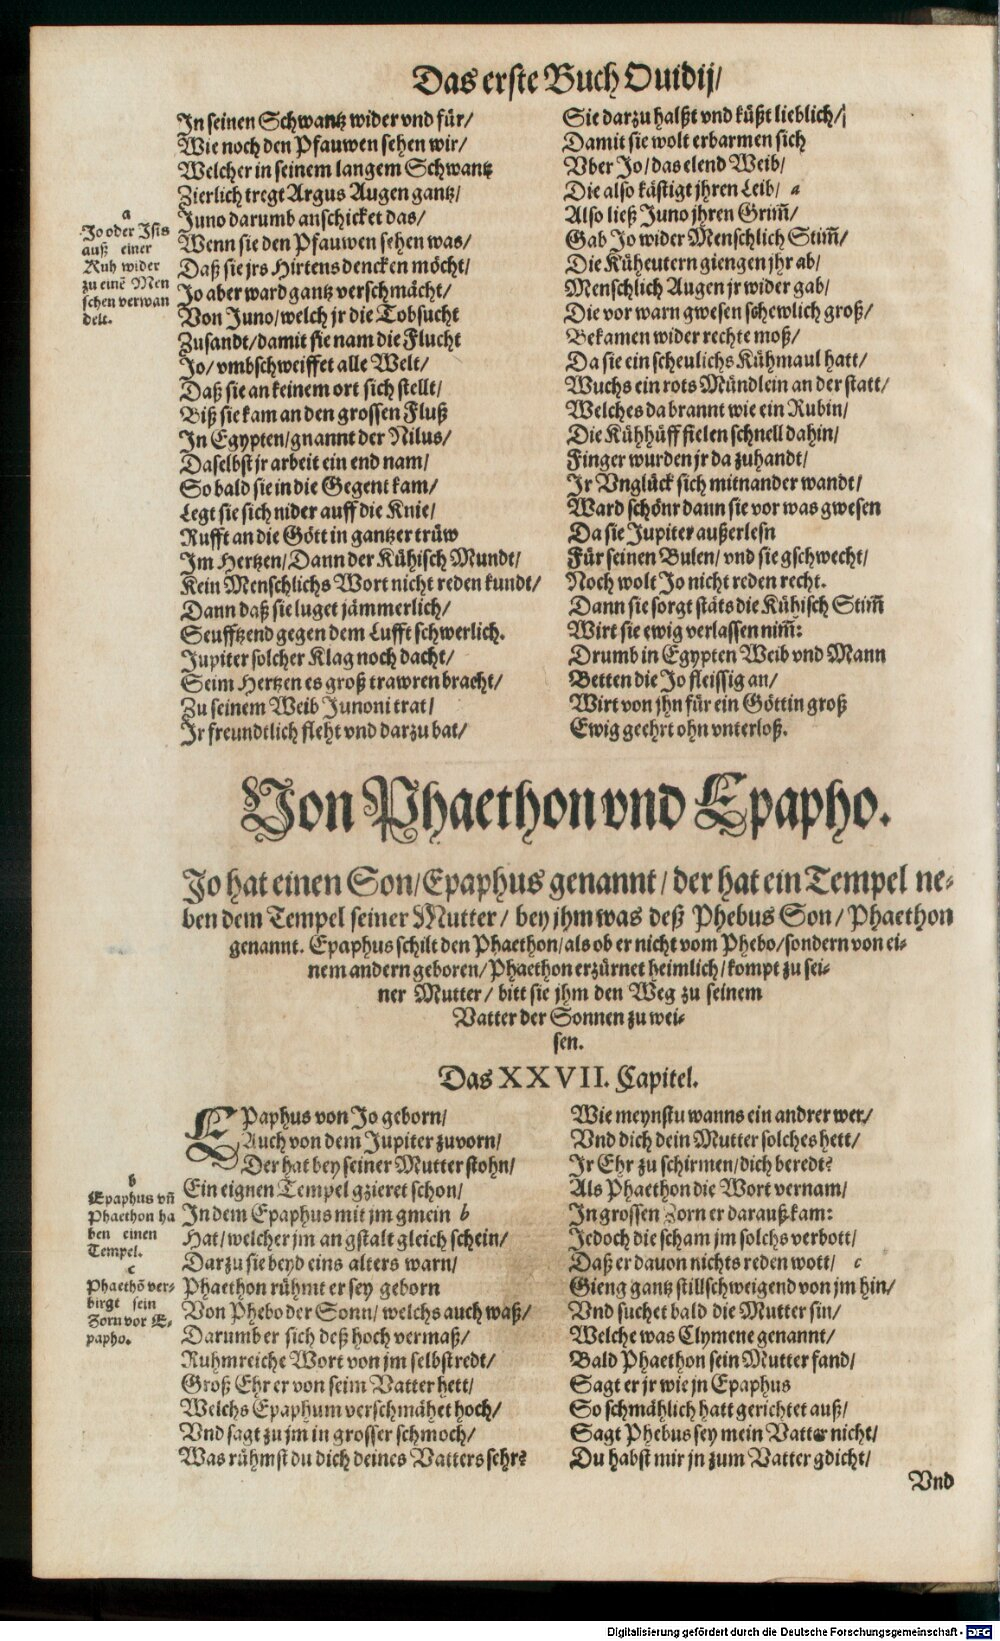 Das erste Buch Ouidij/
In seinen Schwantz wider vnd für/
Wie noch den Pfauwen sehen wir/
Welcher in seinem langem Schwantz
Zierlich tregt Argus Augen gantz/
Juno darumb anschicket das/
Wenn sie den Pfauwen sehen was/
Daß sie jrs Hirtens dencken möcht/
Jo aber ward gantz verschmächt/
Von Juno/welch jr die Tobsucht
Zusandt/damit sie nam die Flucht
Jo/ vmbschweiffet alle Welt/
Daß sie an keinem ort sich stellt/
Biß sie kam an den grossen Fluß
In Egypten/gnannt der Nilus/
Daselbst jr arbeit ein end nam/
So bald sie in die Gegent kam/
Legt sie sich nider auff die Knie/
Rufft an die Gött in gantzer trüw
Im Hertzen/Dann der Kühisch Mundt/
Kein Menschlichs Wort nicht reden kundt/
Dann daß sie luget jämmerlich/
Seufftzend gegen dem Lufft schwerlich.
Jupiter solcher Klag noch dacht/
Seim Hertzen es groß trawren bracht/
Zu seinem Weib Junoni trat/
Jr freundtlich fleht vnd darzu bat/
a
Jo oder Isis
auß einer
Kuh wider
zu einē Men
schen verwan
delt.
Sie darzu halßt vnd küßt lieblich/
Damit sie wolt erbarmen sich
Vber Jo/das elend Weib/
Die also kästigt jhren Leib/ a
Also ließ Juno jhren Grim̄/
Gab Jo wider Menschlich Stim̄/
Die Küheutern giengen jhr ab/
Menschlich Augen jr wider gab/
Die vor warn gwesen schewlich groß/
Bekamen wider rechte moß/
Da sie ein scheulichs Kühmaul hatt/
Wuchs ein rots Mündlein an der statt/
Welches da brannt wie ein Rubin/
Die Kühhüff fielen schnell dahin/
Finger wurden jr da zuhandt/
Jr Vnglück sich mitnander wandt/
Ward schönr dann sie vor was gwesen
Da sie Jupiter außerlesn
Für seinen Bulen/ vnd sie gschwecht/
Noch wolt Jo nicht reden recht.
Dann sie sorgt stäts die Kühisch Stim̄
Wirt sie ewig verlassen nim̄:
Drumb in Egypten Weib vnd Mann
Betten die Jo fleissig an/
Wirt von jhn für ein Göttin groß
Ewig geehrt ohn vnterloß.
Von Phaethon vnd Epapho.
Jo hat einen Son/Epaphus genannt/ der hat ein Tempel ne-
ben dem Tempel seiner Mutter/ bey jhm was deß Phebus Son/ Phaethon
genannt. Epaphus schilt den Phaethon/als ob er nicht vom Phebo/sondern von ei-
nem andern geboren/Phaethon erzürnet heimlich/kompt zu sei-
ner Mutter/ bitt sie jhm den Weg zu seinem
Vatter der Sonnen zu wei-
sen.
Das XXVII. Capitel.
EPaphus von Jo geborn/
Auch von dem Jupiter zuvorn/
Der hat bey seiner Mutter stohn/
Ein eignen Tempel gzieret schon/
In dem Epaphus mit jm gmein b
Hat/welcher jm an gstalt gleich schein/
Darzu sie beyd eins alters warn/
Phaethon rühmt er sey geborn
Von Phebo der Sonn/ welchs auch waß/
Darumb er sich deß hoch vermaß/
Ruhmreiche Wort von jm selbst redt/
Groß Ehr er von seim Vatter hett/
Welchs Epaphum verschmähet hoch/
Vnd sagt zu jm in grosser schmoch/
Was rühmst du dich deines Vatters sehr?
b
Epaphus vn̄
Phaethon ha
ben einen
Tempel.
c
Phaethō ver-
birgt sein
Zorn vor E-
papho.
Wie meynstu wanns ein andrer wer/
Vnd dich dein Mutter solches hett/
Ir Ehr zu schirmen/dich beredt?
Als Phaethon die Wort vernam/
In grossen Zorn er darauß kam:
Jedoch die scham jm solchs verbott/
Daß er dauon nichts reden wott/ c
Gieng gantz stillschweigend von jm hin/
Vnd suchet bald die Mutter sin/
Welche was Clymene genannt/
Bald Phaethon sein Mutter fand/
Sagt er jr wie jn Epaphus
So schmählich hatt gerichtet auß/
Sagt Phebus sey mein Vatter nicht/
Du habst mir jn zum Vatter gdicht/
Vnd
Digitalisierung gefördert durch die Deutsche Forschungsgemeinschaft - DFG